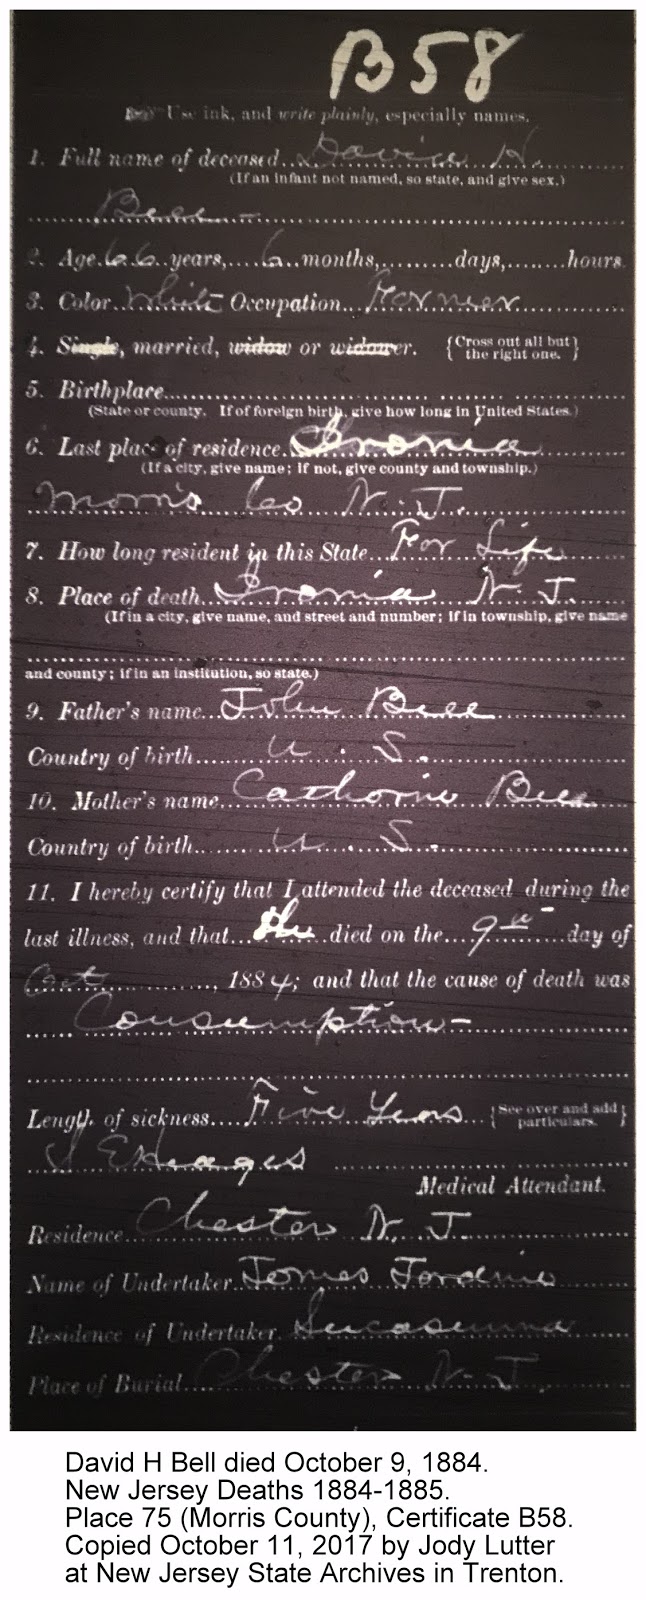 B58
Use ink, and write plainly, especially names.
1. Full name of deceased...David H.
(If an infant not named, so state, and give sex.)
Bell-
2. Age 66 years, 6 months, days, hours.
3. Color White Occupation Farmer
4. Single, married, widow or widower. {Cross out all but the right one.}
5. Birthplace
(State or county. If of foreign birth, give how long in United States.)
6. Last place of residence Ironia
(If a city, give name; If not, give county and township.)
Morris Co N. J.
7. How long resident in this State For Life
8. Place of death Ironia N. J.
(If in a city, give name, and street and number; if in township, give name
and county; if in an institution, so state.)
9. Father's name John Bell
Country of birth U. S.
10. Mother's name Catherine Bell
Country of birth U. S.
11. I hereby certify that I attended the deceased during the
last illness, and that he died on the 9th day of
Oct, 1884; and that the cause of death was
Consumption-
Length of sickness Five Years {See over and add particulars.}
Medical Attendant.
Residence Chester N. J.
Name of Undertaker James Jardine
Residence of Undertaker Succasunna
Place of Burial Chester N. J.
David H Bell died October 9, 1884.
New Jersey Deaths 1884-1885.
Place 75 (Morris County), Certificate B58.
Copied October 11, 2017 by Jody Lutter
at New Jersey State Archives in Trenton.